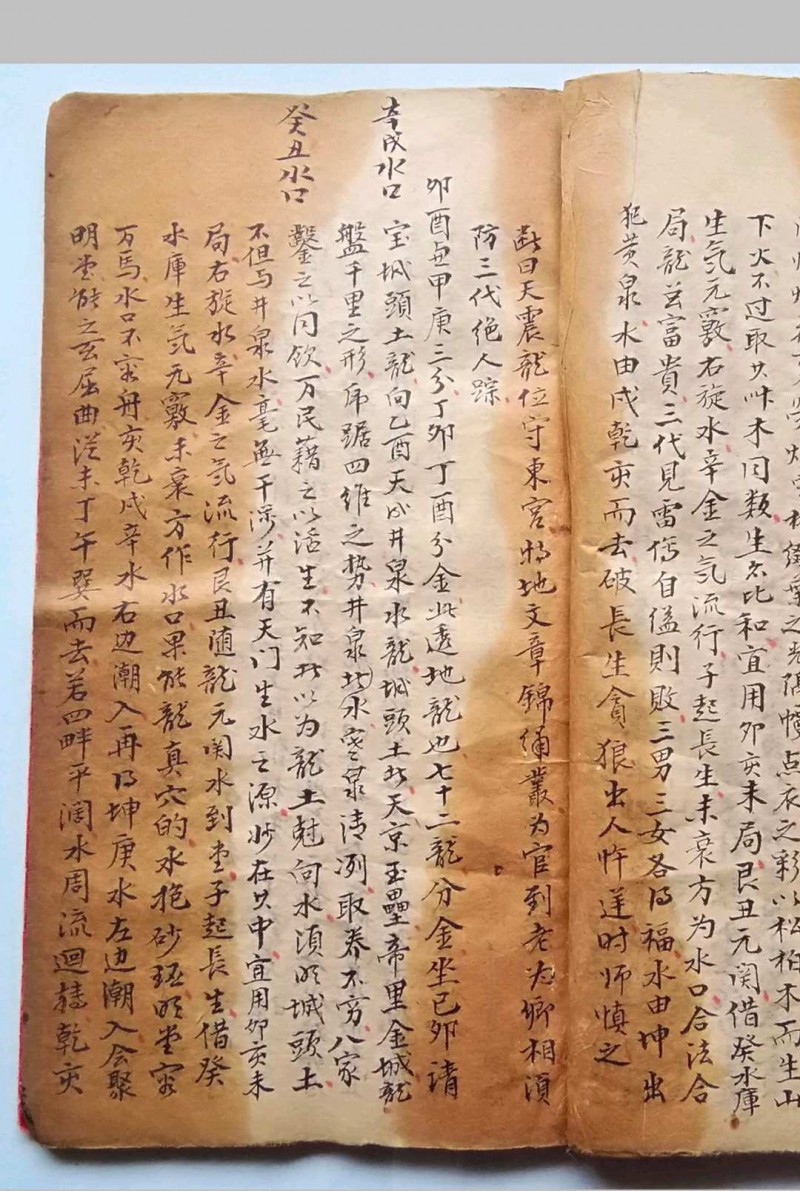 下火不过取其艸木同類生亥比和宜用卯亥未局艮丑元関借癸水庫
生気元竅右旋水辛金之気流行子起長生未衰方为水口合法合
局龍兰富貴三代見雷傷自縊則敗三男三女各得福水由坤出
犯黄泉水由戌乾亥而去破長生貪狼出人忤逆时师慎之
断曰天震龍位守東宮特地文章錦绣叢为官到老为卿相须
防三代绝人踪
卯酉兼甲庚三分丁卯丁酉分金此透地龍也七十二龍分金坐已卯清
辛戌水口
宝城頭土龍向乙酉天成井泉水龍城頭土此天京玉壘帝里金城龍
盤千里之形席踞四维之势井泉此水寒泉清冽取养不穷八家
癸丑水口
鑿之以同飲万民藉之以活生不知此以为龍土尅向水須明城頭土
不但与井泉水毫無干涉并有天门生水之源妙在其中宜用卯亥未
局右旋水辛金之气流行艮丑随龍元関水到堂子起長生借癸
水庫生気元竅未衰方作水口果能龍真穴的水抱砂环明堂容
万馬水口不容舟亥乾戌辛水右边潮入再得坤庚水左边潮入会聚
明堂能之玄屈曲从未丁午巽而去若四畔平濶水周流迴转乾亥